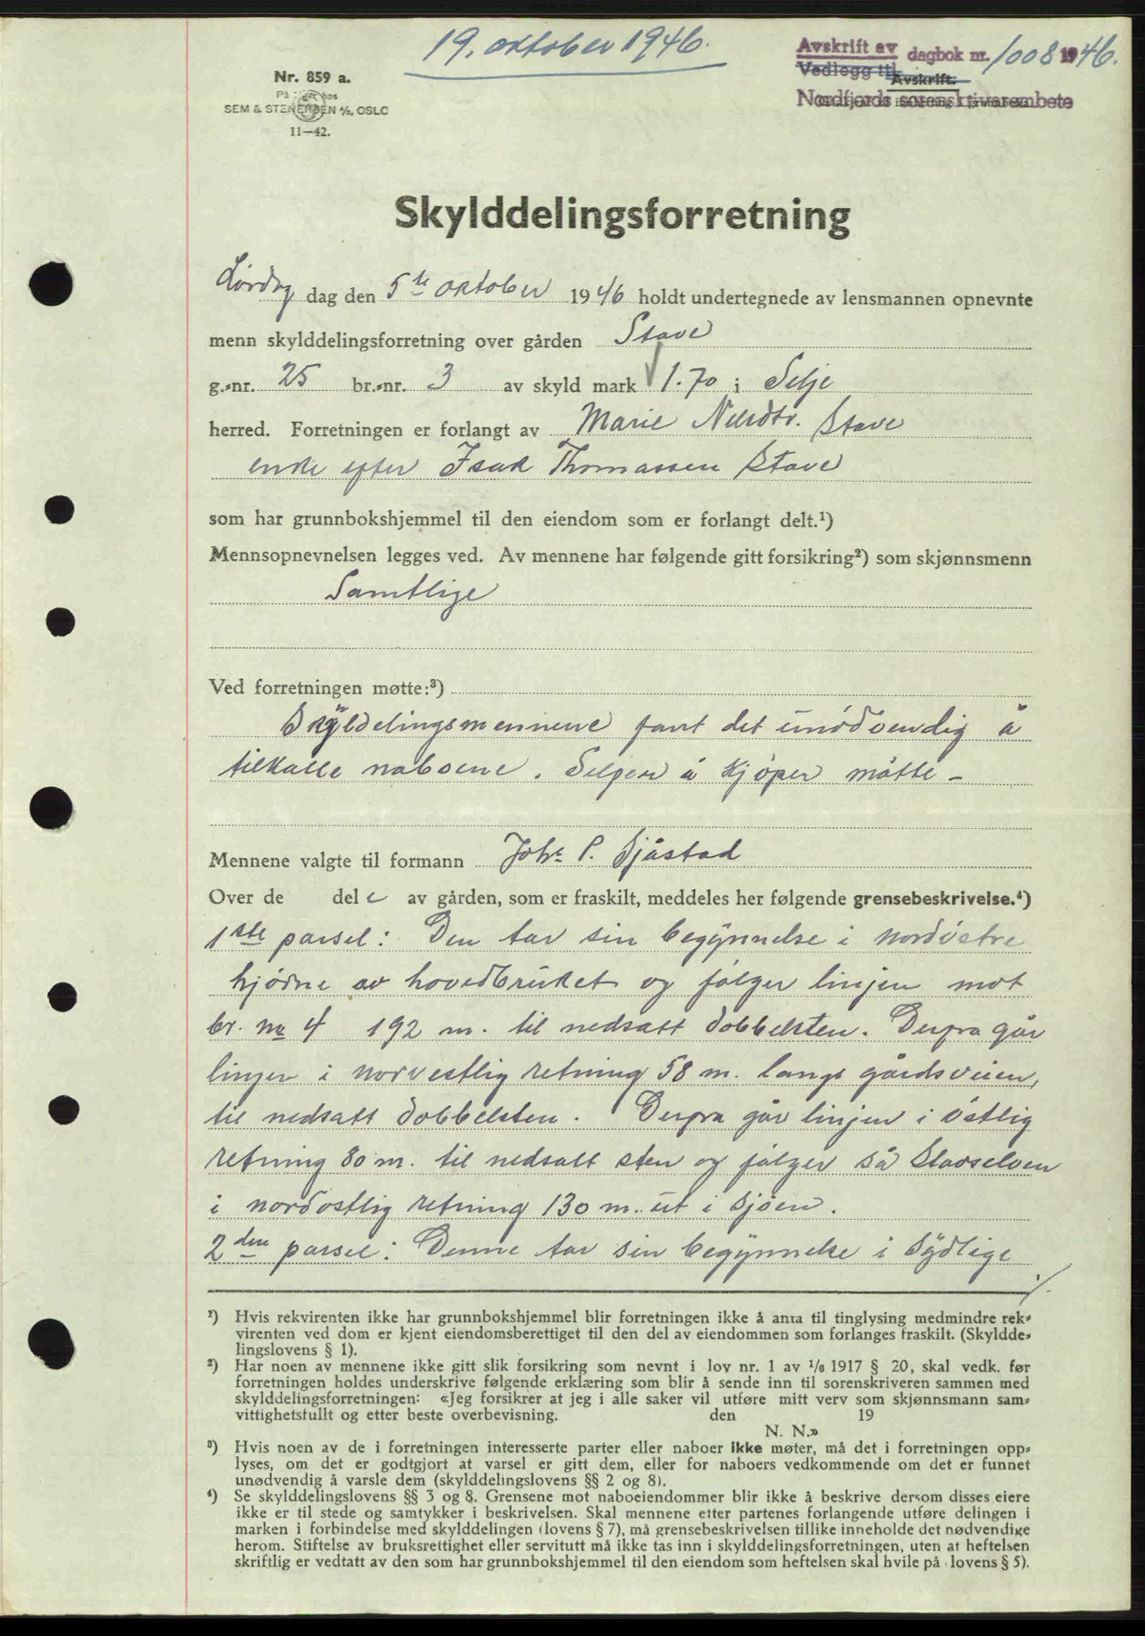 19. oktober 1946.
Avskrift av dagbok nr. 1008 1946.
Vedlegg til
Avskrift.
Nordfjords sorenskriverembete
Nr. 859 a.
På hos
SEM & STENERSEN A/S, OSLO
11—42.
Skylddelingsforretning
Lørdag dag den 5te oktober 1946 holdt undertegnede av lensmannen opnevnte
menn skylddelingsforretning over gården Stave
g.-nr. 25 br.-nr. 3 av skyld mark 1.70 i Selje
herred. Forretningen er forlangt av Marie Nilsdtr. Stave
enke efter Isak Thomassen Stave
som har grunnbokshjemmel til den eiendom som er forlangt delt.¹)
Mennsopnevnelsen legges ved. Av mennene har følgende gitt forsikring²) som skjønnsmenn
Samtlige
Ved forretningen møtte:³)
Skyldelingsmennene fant det unödvendig å
tilkalle naboene. Selger å Kjøper møtte –
Mennene valgte til formann Johs P. Sjåstad
Over de del e av gården, som er fraskilt, meddeles her følgende grensebeskrivelse.⁴)
1ste parsel: Den tar sin begynnelse i nordöstre
hjörne av hovedbruket og følger linjen mot
br. no 4 192 m. til nedsatt dobbelsten. Derfra går
linjen i norvestlig retning 58 m. langs gårdsveien,
til nedsatt dobbelsten. Derfra går linjen i östlig
retning 80 m. til nedsatt sten og følger så Stadselven
i nordostlig retning 130 m. ut i sjøen.
2den parsel: Denne tar sin begynnelse i sydlige
./.
¹) Hvis rekvirenten ikke har grunnbokshjemmel blir forretningen ikke å anta til tinglysing medmindre rek-
virenten ved dom er kjent eiendomsberettiget til den del av eiendommen som forlanges fraskilt. (Skyldde-
lingslovens § 1).
²) Har noen av mennene ikke gitt slik forsikring som nevnt i lov nr. 1 av 1/6 1917 § 20, skal vedk. før
forretningen holdes underskrive følgende erklæring som blir å sende inn til sorenskriveren sammen med
skylddelingsforretningen: «Jeg forsikrer at jeg i alle saker vil utføre mitt verv som skjønnsmann sam-
vittighetsfullt og etter beste overbevisning. den 19
N. N.»
³) Hvis noen av de i forretningen interesserte parter eller naboer ikke møter, må det i forretningen opp-
lyses, om det er godtgjort at varsel er gitt dem, eller for naboers vedkommende om det er funnet
unødvendig å varsle dem (skylddelingslovens §§ 2 og 8).
⁴) Se skylddelingslovens §§ 3 og 8. Grensene mot naboeiendommer blir ikke å beskrive dersom disses eiere
ikke er til stede og samtykker i beskrivelsen. Skal mennene etter partenes forlangende utføre delingen i
marken i forbindelse med skylddelingen (lovens § 7), må grensebeskrivelsen tillike inneholde det nødvendige
herom. Stiftelse av bruksrettighet eller servitutt må ikke tas inn i skylddelingsforretningen, uten at heftelsen
skriftlig er vedtatt av den som har grunnbokshjemmel til den eiendom som heftelsen skal hvile på (lovens § 5).